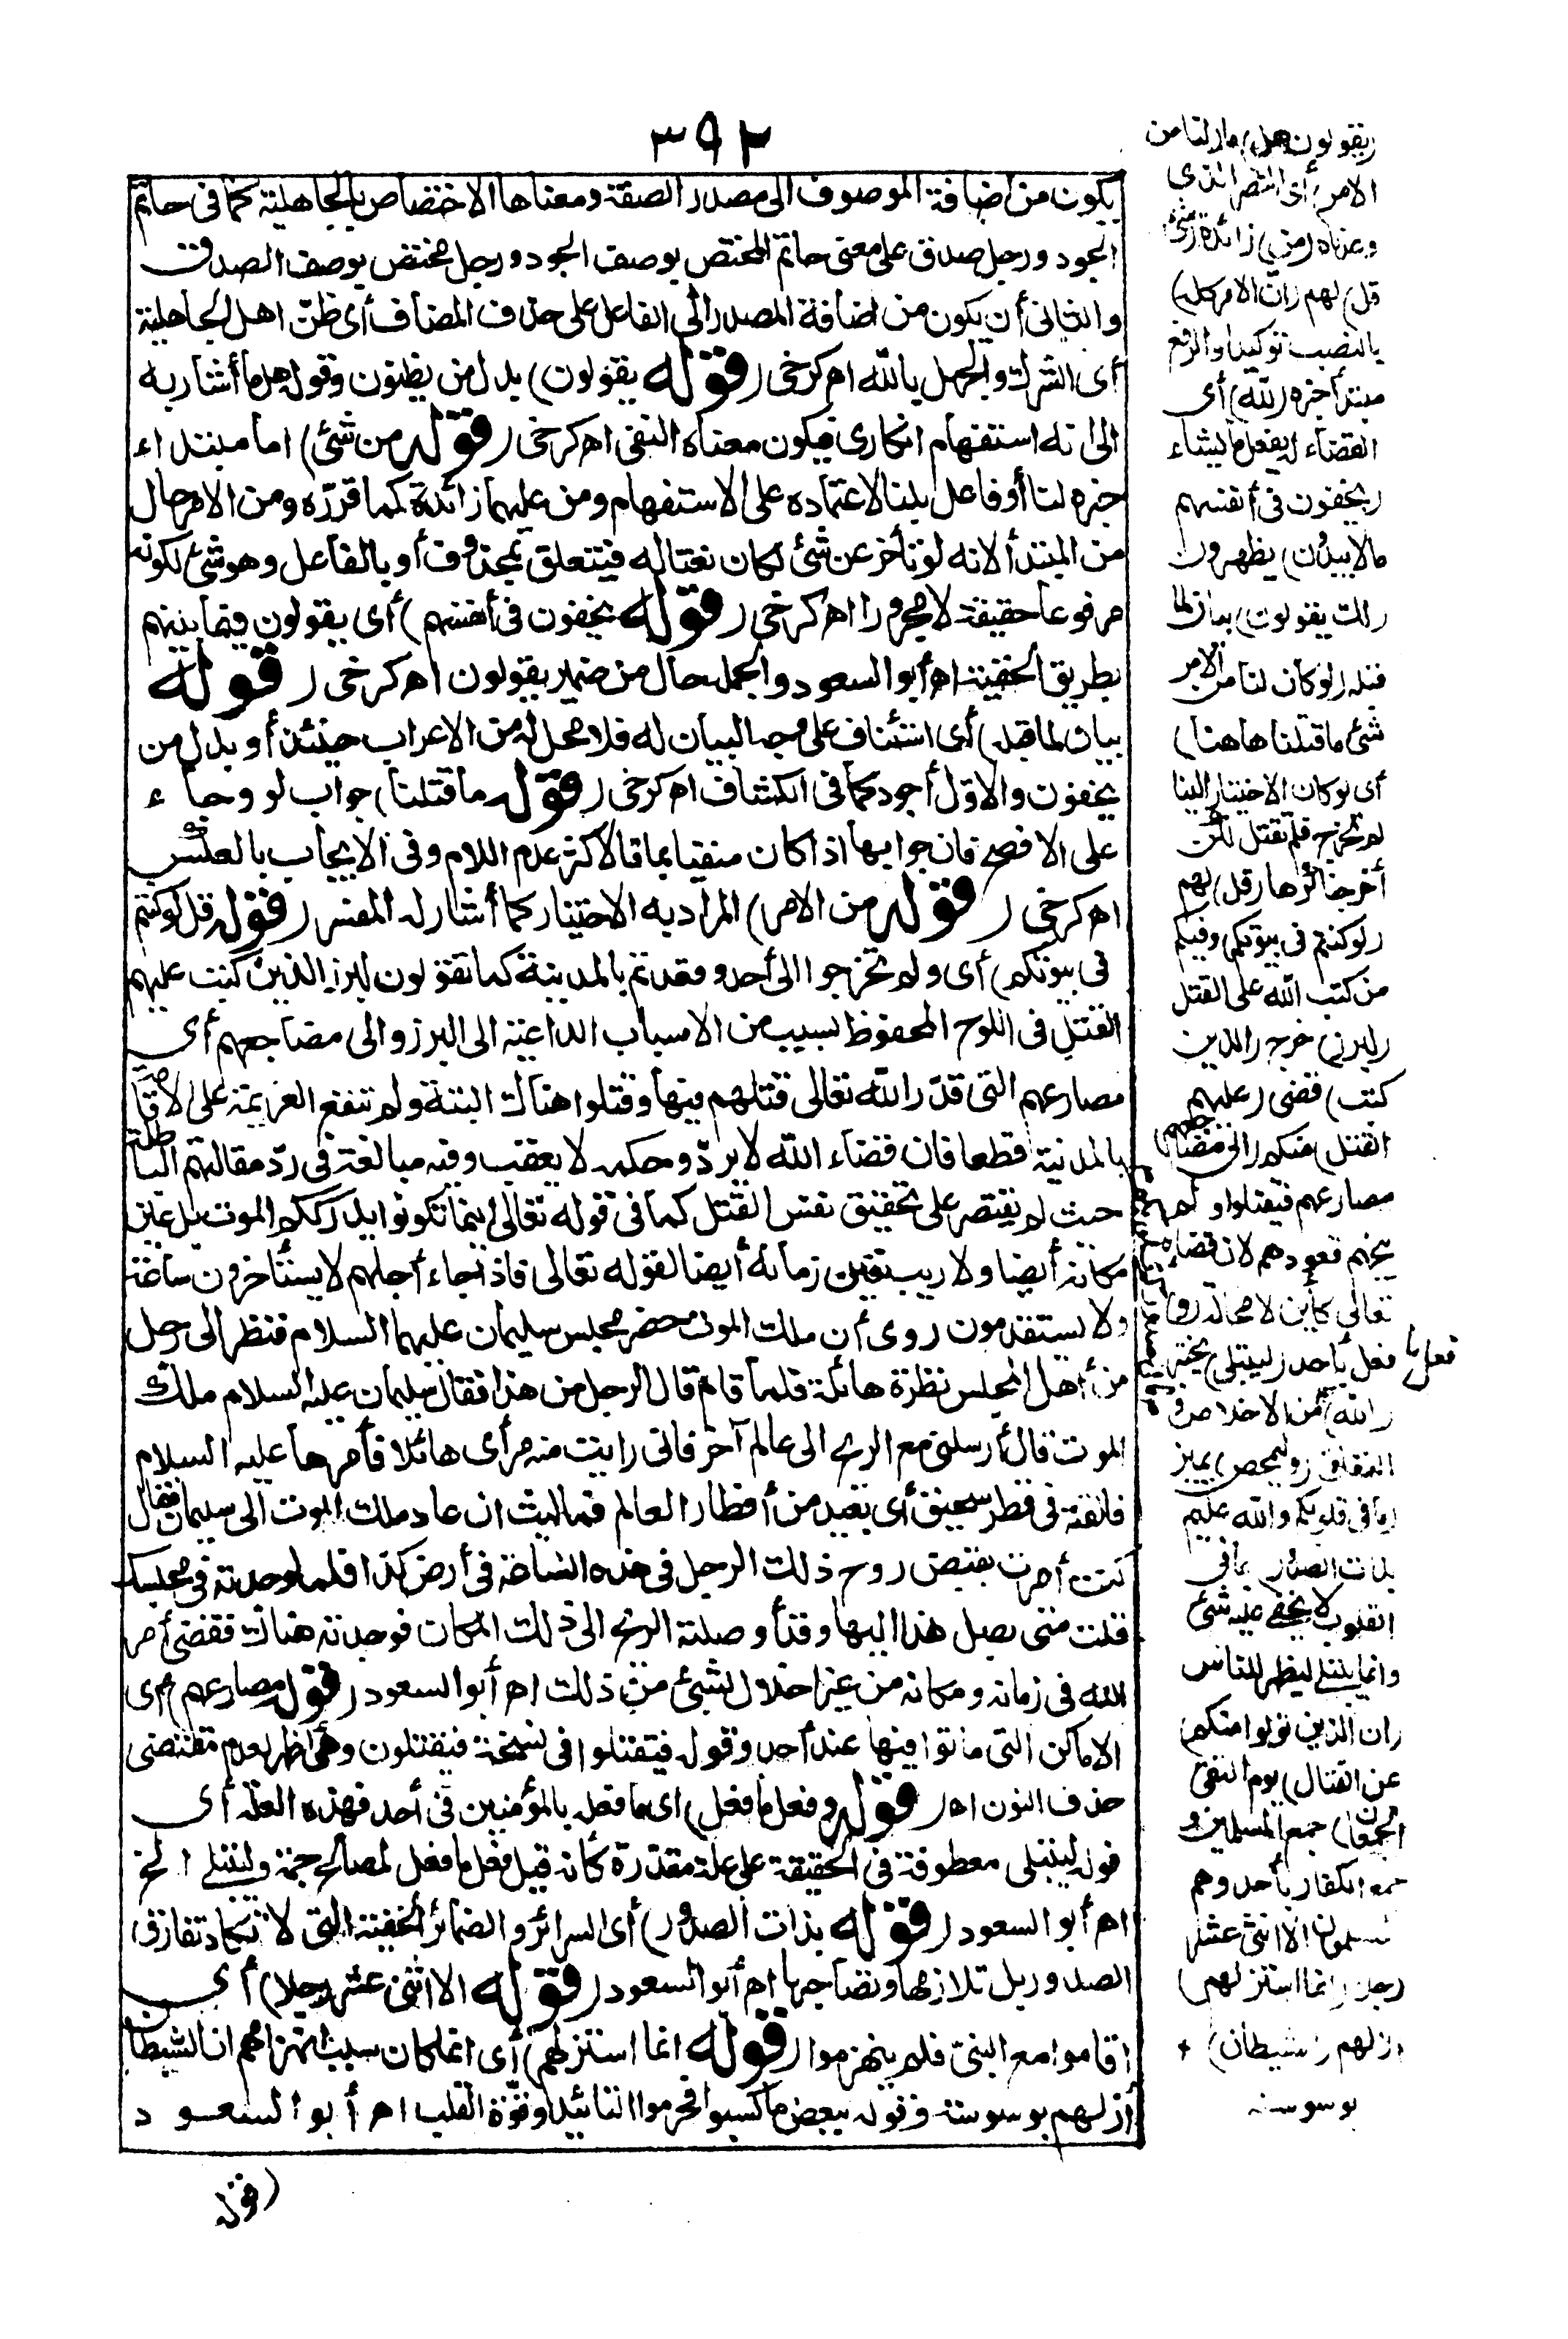 ٣٩٢
يكون من اضافة الموصوف الى مصدر الصفة ومعناها الاختصاص بالجاهلية كما فى حاتم
الجود ورجل صدق على معنى حاتم المختص بوصف الجود ورجل مختص بوصف الصدق
والثانى أن يكون من اضافة المصدر الى الفاعل على حذف المضاف أى ظن اهل الجاهلية
أى الشرك والجهل بالله اه كرخى (قوله يقولون) بدل من يظنون وقوله هل ما أشار به
الى انه استفهام انكارى فيكون معناه النفى اه كرخى (قوله من شئ) اما مبتدا
خبره لنا أو فاعل بلنا لاعتماده على الاستفهام ومن عليهما زائدة كما قرره ومن الامر حال
من المبتدأ لانه لو تأخر عن شئ لكان نعتا له فيتعلق بمحذوف أو بالفاعل وهو شئ لكونه
مرفوعا حقيقة لا مجرورا اه كرخى (قوله يخفون فى أنفسهم) أى يقولون فيما بينهم
بطريق الخفية اه أبو السعود والجملة حال من ضمير يقولون اه كرخى (قوله
بيان لما قبله) أى استئناف على وجه البيان له فلا محل له من الاعراب حينئذ أو بدل من
يخفون والاول أجود كما فى الكشاف اه كرخى (قوله ما قتلنا) جواب لو وجاء
على الافصح فان جوابها اذا كان منفيا بما فالاكثر عدم اللام وفى الايجاب بالعكس
اه كرخى (قوله من الامر) المراد به الاختيار كما أشار له المفسر (قوله قل لو كنتم
فى بيوتكم) أى ولم تخرجوا الى أحد وقعدتم بالمدينة كما تقولون لبرز الذين كتب عليهم
القتل فى اللوح المحفوظ بسبب من الاسباب الداعية الى البرز والى مضاجعهم أى
مصارعهم التى قدر الله تعالى قتلهم فيها وقتلوا هناك البتة ولم تنفع العزيمة على الاقامة
بالمدينة قطعا فان قضاء الله لا يرد وحكمه لا يعقب وفيه مبالغة فى رد مقالتهم الباطلة
حيث لم يقتصر على تحقيق نفس القتل كما فى قوله تعالى اينما تكونوا يدرككم الموت بل عين
مكانه أيضا ولا ريب تعين زمانه أيضا لقوله تعالى فاذا جاء أجلهم لا يستأخرون ساعة
ولا يستقدمون روى أن ملك الموت حضر مجلس سليمان عليهما السلام فنظر الى رجل
من أهل المجلس نظرة هائلة فلما قام قال الرجل من هذا فقال سليمان عليه السلام ملك
الموت قال أرسلنى مع الريح الى عالم آخر فانى رايت منه مرأى هائلا فأمرها عليه السلام
فالقته فى قطر سحيق أى بعيد من أقطار العالم فما لبث ان عاد ملك الموت الى سليمان فقال
كنت أمرت بقبض روح ذلك الرجل فى هذه الساعة فى أرض كذا فلما وجدته فى مجلسك
قلت متى يصل هذا اليها وقد أوصلته الريح الى ذلك المكان فوجدته هناك فقضى أمر
الله فى زمانه ومكانه من غير اخلال بشئ من ذلك اه أبو السعود (قوله مصارعهم) أى
الاماكن التى ماتوا فيها عند أحد وقوله فيقتلوا فى نسخة فيقتلون وهى اظهر لعدم مقتضى
حذف النون اه (قوله وفعل ما فعل) اى ما فعله بالمؤمنين فى أحد فهذه العلة أى
قوله ليبتلى معطوفة فى الحقيقة على علة مقدرة كأنه قيل فعل ما فعل لمصالح جمة وليبتلى الخ
اه أبو السعود (قوله بذات الصدور) أى السرائر والضمائر الخفية التى لا تكاد تفارق
الصدور بل تلازمها وتصاحبها اه أبو السعود (قوله الا اثنى عشر رجلا) أى
اقاموا مع النبى فلم ينهزموا (قوله انما استزلهم) أى انما كان سبب انهزامهم ان الشيطان
أزلهم بوسوسته وقوله ببعض ما كسبوا فحرموا التائيد وقوة القلب اه أبو السعود
(قوله
(يقولون هل) ما (لنا من
الامر) أى النصر الذى
وعدناه (من) زائدة (شئ
قل) لهم (ان الامر كله)
بالنصب توكيدا والرفع
مبتدأ خبره (لله) أى
القضاء له يفعل ما يشاء
(يخفون فى أنفسهم
ما لا يبدون) يظهرون
(لك يقولون) بيان لما
قبله (لو كان لنا من الامر
شئ ما قتلنا هاهنا)
أى لو كان الاختيار الينا
لم نخرج فلم نقتل لكن
أخرجنا كرها (قل) لهم
(لو كنتم فى بيوتكم) وفيكم
من كتب الله على القتل
(لبرز) خرج (الذين
كتب) قضى (عليهم
القتل) منكم (الى مضاجعهم)
مصارعهم فيقتلوا ولم
ينجهم قعودهم لان قضاءه
تعالى كائن لا محالة (و)
فعل ما
فعل بأحد (ليبتلى) يختبر
(الله)
من الاخلاص و
النفاق (وليمحص) يميز
(ما فى قلوبكم والله عليم
بذات الصدور) بما فى
القلوب لا يخفى عليه شئ
وانما يبتلى ليظهر للناس
(ان الذين تولوا منكم)
عن القتال (يوم التقى
الجمعان) جمع المسلمين و
جمع الكفار بأحد وهم
المسلمون الا اثنى عشر
رجلا (انما استزلهم)
أزلهم (الشيطان)
بوسوسته